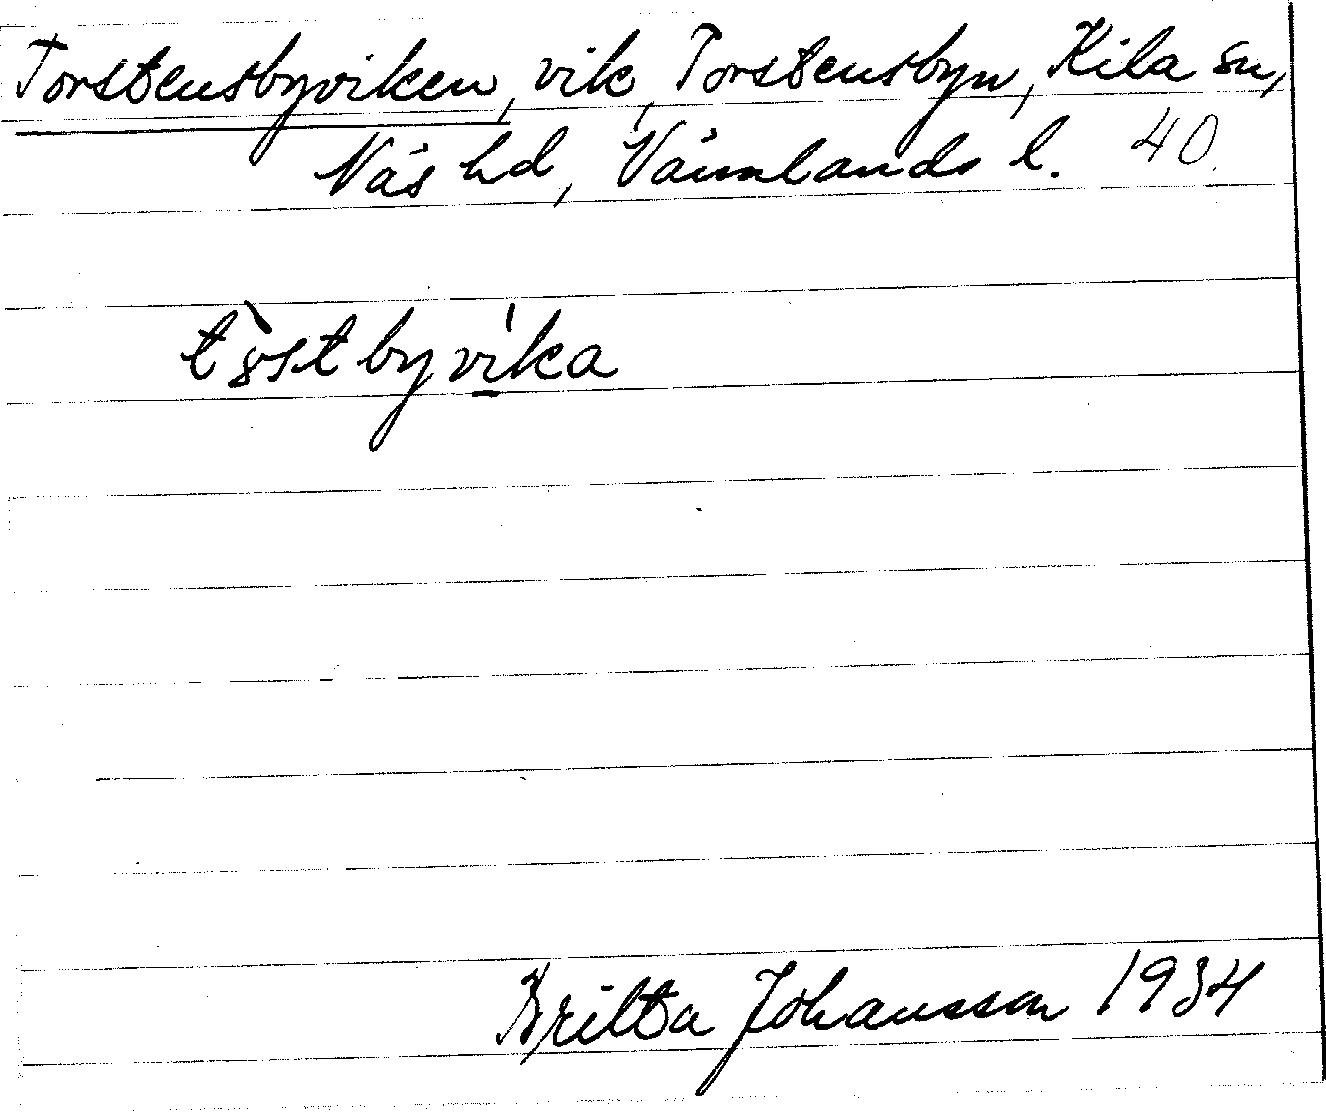 Torstensbyviken, vik, Torstensbyn, Kila sn,
Näs hd, Värmlands l. 40.
tɣ̀stbyví̠ka
Britta Johansson 1934